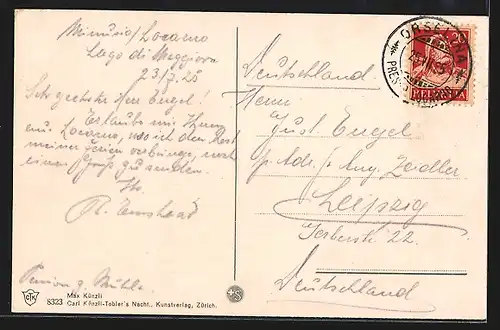 Minusio/Locarno
Lago di Maggiore
23/7.25
Sehr geehrter Herr Engel!
Erlaube mir Ihnen
aus Locarno, wo ich den Rest
meiner Ferien verbringe, noch
einen Gruß zu senden.
Ihr
R.
Pension z. Mühle
CTK
8323
Max Künzli
Carl Künzli-Tobler's Nachf., Kunstverlag, Zürich.
+S
ORSELINA
20
HELVETIA
Deutschland.
Herrn
Just. Engel
p. Adr. / Aug. Zeidler
Leipzig
Gerberstr. 22.
Deutschland